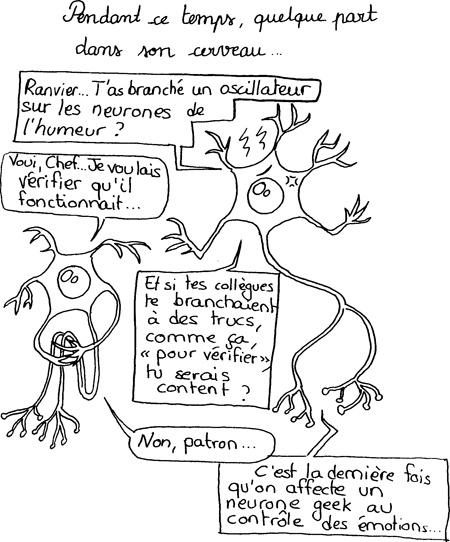 Pendant ce temps, quelque part
dans son cerveau...
Ranvier... T'as branché un oscillateur
sur les neurones de
l'humeur ?
Voui, Chef... Je voulais
vérifier qu'il
fonctionnait...
Et si tes collègues
te branchaient
à des trucs,
comme ça,
« pour vérifier »,
tu serais
content ?
Non, patron...
C'est la dernière fois
qu'on affecte un
neurone geek au
contrôle des émotions...